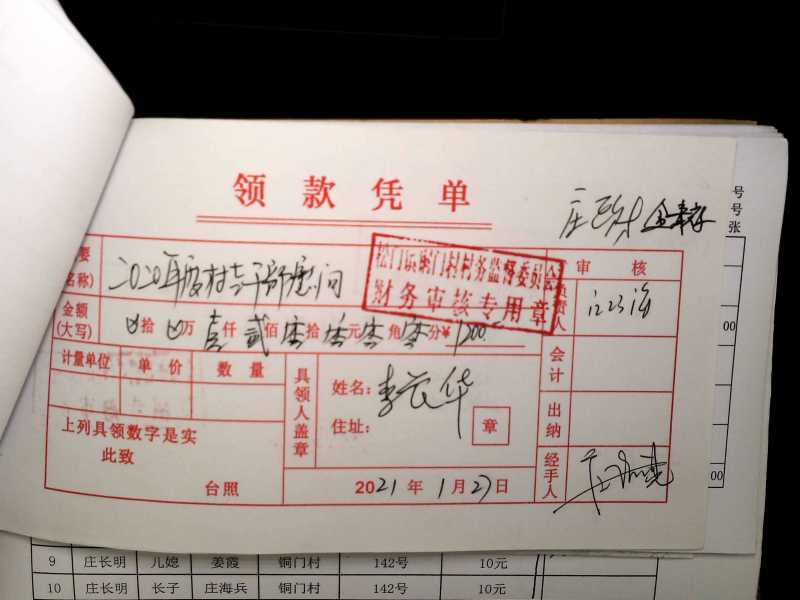 领款凭单
要 2020年度村老干部慰问
名称)
松门镇铜门村村务监督委员会
财务审核专用章
审核
负责人
金额
(大写) 拾 万 壹仟 贰佰 零拾 零元 零角 零分 ¥ 1200
计量单位 单价 数量
具领人盖章
姓名: 李云华
住址: 章
会计
出纳
经手人
上列具领数字是实
此致
台照
2021年1月27日
号
号
张
00
00
9 庄长明 儿媳 姜霞 铜门村 142号 10元
10 庄长明 长子 庄海兵 铜门村 142号 10元